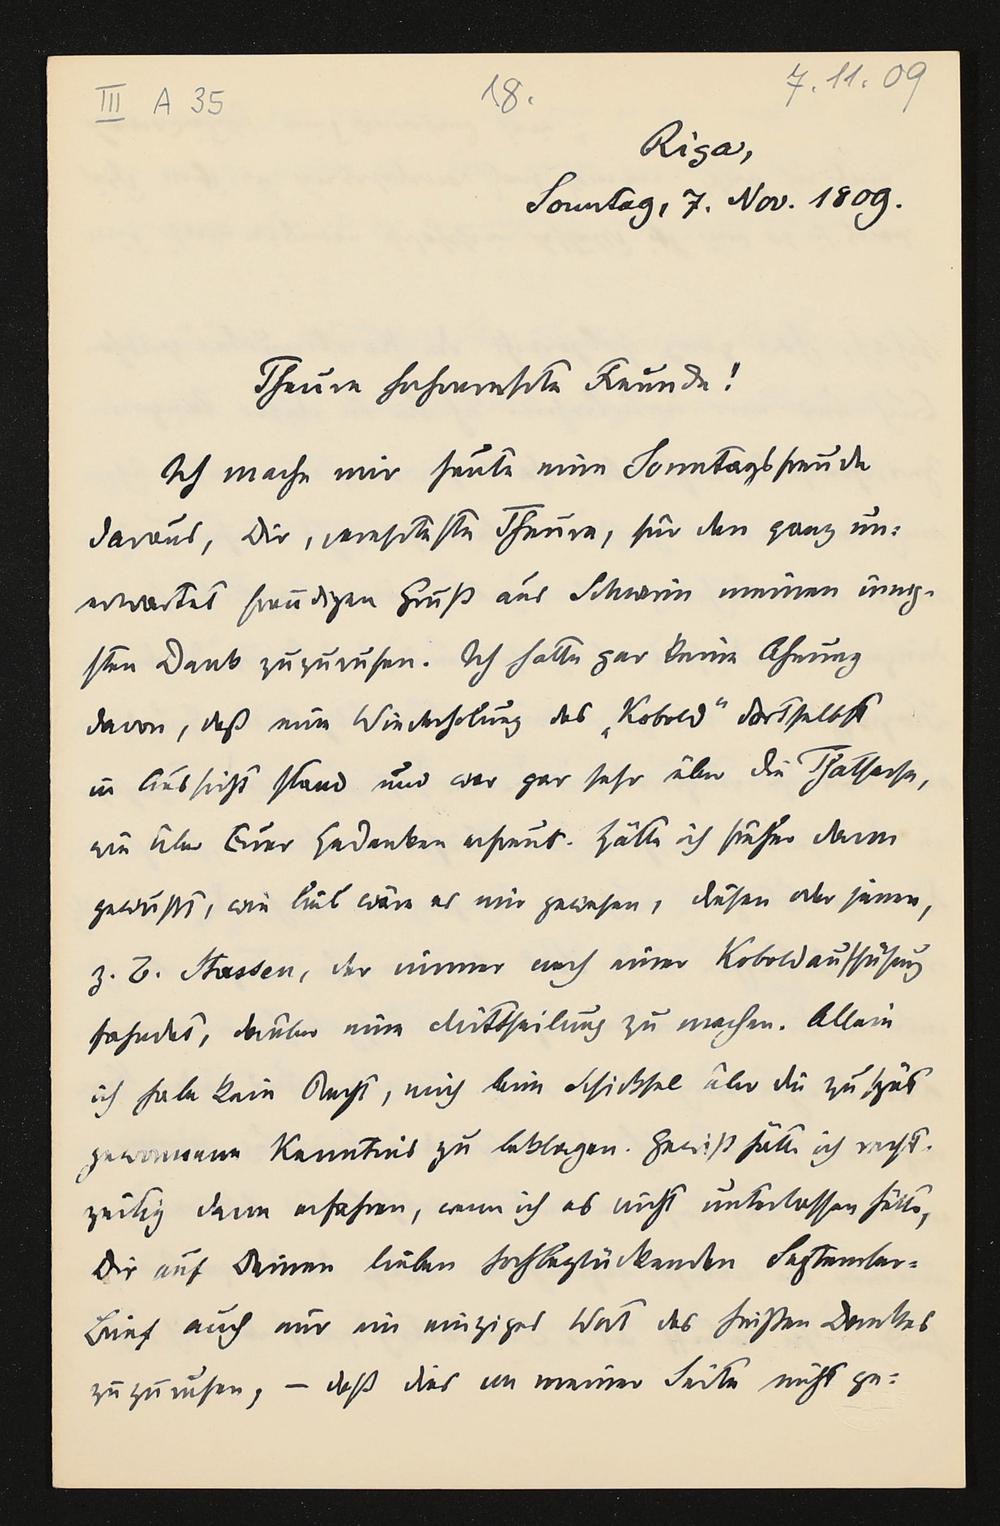 III A 35
18.
7. 11. 09
Riga,
Sonntag, 7. Nov. 1809.
Theure hochverehrte Freunde!
Ich mache mir heute eine Sonntagsfreude
daraus, Dir, verehrteste Theure, für den ganz un=
erwartet freudigen Gruß aus Schwerin meinen innig-
sten Dank zuzurufen. Ich hatte gar keine Ahnung
davon, daß eine Wiederholung des „Kobold" dortselbst
in Aussicht stand und war gar sehr über die Thatsache,
wie über Euer Gedenken erfreut. Hätte ich früher davon
gewußt, wie lieb wäre es mir gewesen, diesen oder jenen,
z. B. Stassen, der immer nach einer Koboldaufführung
fahndet, darüber eine Mittheilung zu machen. Allein
ich habe kein Recht, mich beim Schicksal über die zu spät
gewonnene Kenntnis zu beklagen. Gewiß hätte ich recht-
zeitig davon erfahren, wenn ich es nicht unterlassen hätte,
Dir auf Deinen lieben hochbeglückenden September=
Brief auch nur ein einziges Wort des heißen Dankes
zuzurufen, — daß dies von meiner Seite nicht ge=